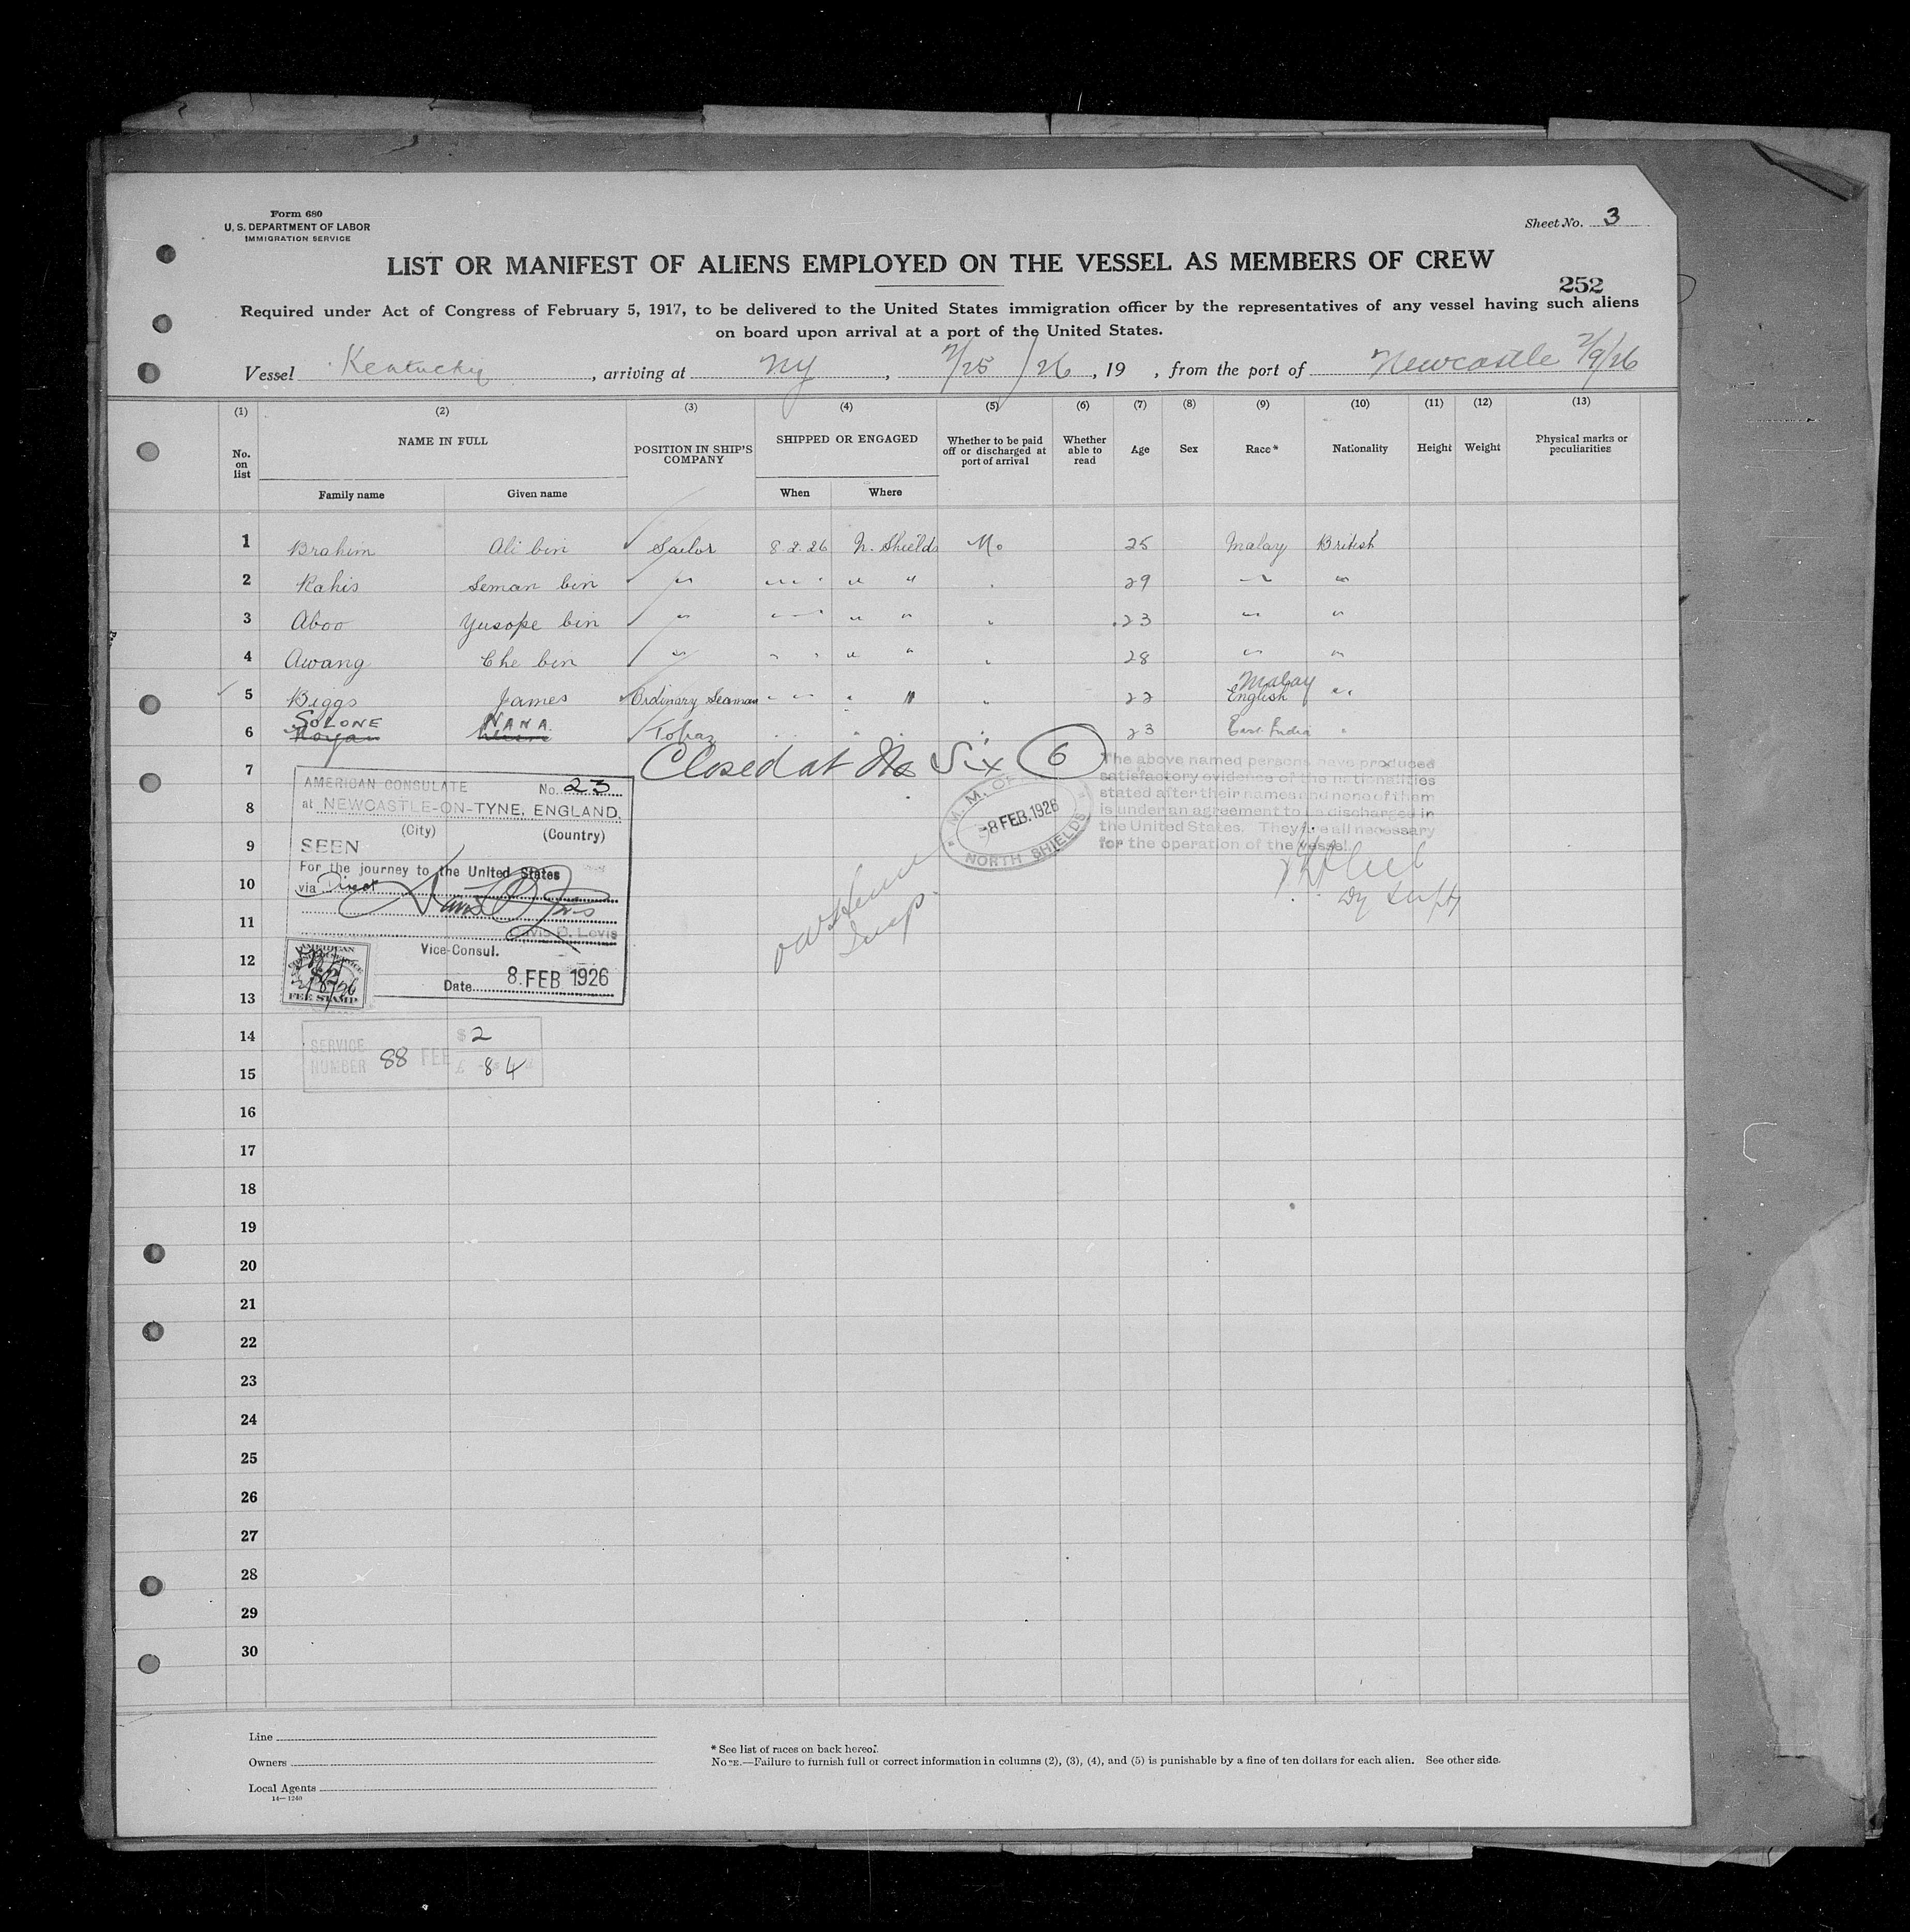 Form 680
U. S. DEPARTMENT OF LABOR
IMMIGRATION SERVICE
Sheet No. 3
LIST OR MANIFEST OF ALIENS EMPLOYED ON THE VESSEL AS MEMBERS OF CREW
252
Required under Act of Congress of February 5, 1917, to be delivered to the United States immigration officer by the representatives of any vessel having such aliens
on board upon arrival at a port of the United States.
Vessel Kentucky, arriving at NY, 2/25/26, 19 , from the port of Newcastle 2/9/26
(1) (2) (3) (4) (5) (6) (7) (8) (9) (10) (11) (12) (13)
No. on list NAME IN FULL POSITION IN SHIP'S COMPANY SHIPPED OR ENGAGED Whether to be paid off or discharged at port of arrival Whether able to read Age Sex Race* Nationality Height Weight Physical marks or peculiarities
Family name Given name When Where
1 Brahim Ali bin Sailor 8.2.26 N. Shields No 25 Malay British
2 Rahis Seman bin " " " " 29 " "
3 Aboo Yusope bin " " " " 23 " "
4 Awang Che bin " " " " 28 " "
Malay
5 Biggs James Ordinary Seaman " " " 22 English "
SOLONE NANA
6 Topaz " " 23 East India "
7 Closed at No Six 6
8
9
10
11
12
13
14
15
16
17
18
19
20
21
22
23
24
25
26
27
28
29
30
AMERICAN CONSULATE No. 23
at NEWCASTLE-ON-TYNE, ENGLAND.
(City) (Country)
SEEN
For the journey to the United States
via Direct
Davis B. Levis
Vice-Consul.
Date 8. FEB 1926
AMERICAN
$2
FEE STAMP
SERVICE NUMBER 88 FEE $ 2
£ 8 4
M. M. OF
-8 FEB. 1926
NORTH SHIELDS
The above named persons have produced
satisfactory evidence of the nationalities
stated after their names and none of them
is under an agreement to be discharged in
the United States. They are all necessary
for the operation of the vessel.
Dy Supt
Insp.
Line
Owners
Local Agents
14—1240
* See list of races on back hereof.
NOTE.—Failure to furnish full or correct information in columns (2), (3), (4), and (5) is punishable by a fine of ten dollars for each alien. See other side.